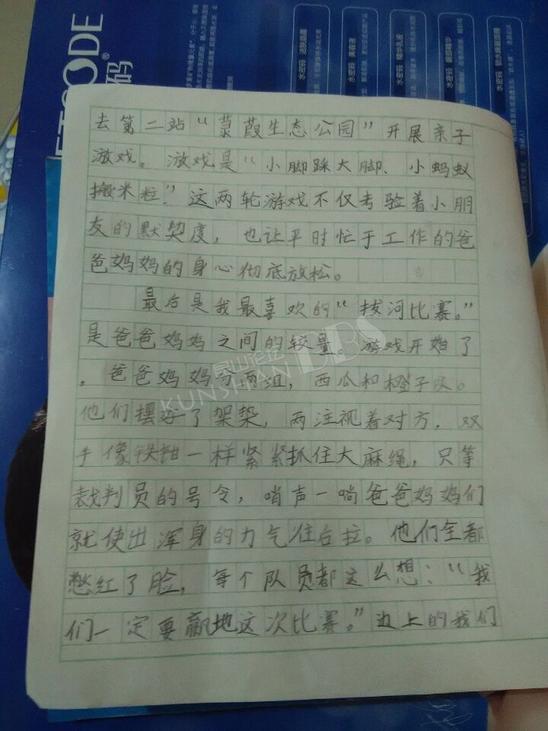 去第二站“菉葭生态公园”开展亲子
游戏。游戏是“小脚踩大脚、小蚂蚁
搬米粒”这两轮游戏不仅考验着小朋
友的默契度，也让平时忙于工作的爸
爸妈妈的身心彻底放松。
最后是我最喜欢的“拔河比赛。”
是爸爸妈妈之间的较量。游戏开始了
，爸爸妈妈分两组，西瓜和橙子队。
他们摆好了架势，两注视着对方，双
手像铁钳一样紧紧抓住大麻绳，只等
裁判员的号令，哨声一响爸爸妈妈们
就使出浑身的力气往后拉。他们全都
憋红了脸，每个队员都这么想：“我
们一定要赢地这次比赛。”边上的我们
KUNSHAN BBS
昆山论坛
CODE
码